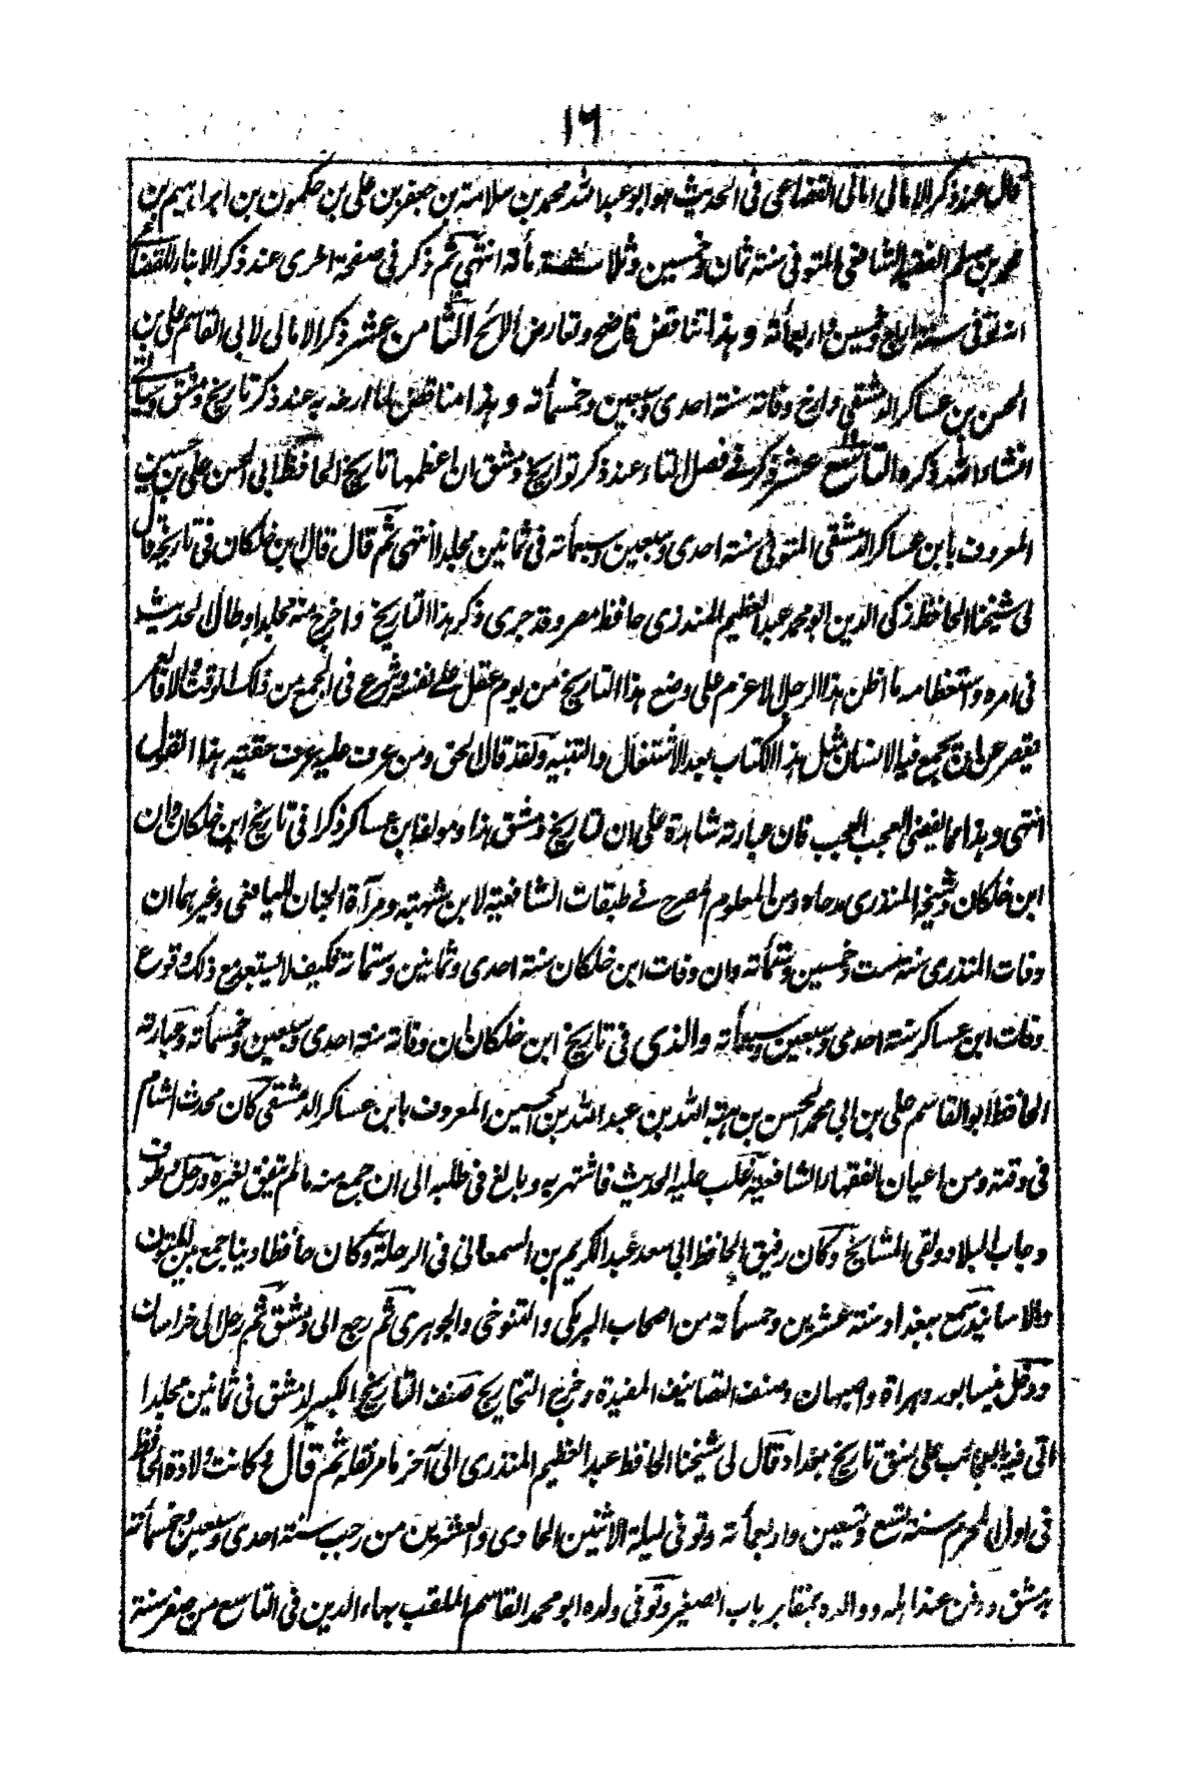 ١٦
قال عند ذكر الامالى امالى القضاعى فى الحديث هو ابو عبد الله محمد بن سلامة بن جعفر بن على بن حكمون بن ابراهيم بن
محمد بن مسلم الفقيه الشافعى المتوفى سنة ثمان وخمسين وثلاث مأته انتهى ثم ذكر فى صفحة اخرى عند ذكر الانباء للقضاعى
انه توفى سنة اربع وخمسين واربعمأته وهذا تناقض فاضح وتعارض لائح الثامن عشر ذكر الامالى لابى القاسم على بن
الحسن بن عساكر الدمشقى وارخ وفاته سنة احدى وسبعين وخمسمأته وهذا مناقض لما ارخه به عند ذكر تاريخ دمشق وسياتى
انشاء الله ذكره التاسع عشر ذكر فے فصل التاء عند ذكر تواريخ دمشق ان اعظمها تاريخ الحافظ ابى الحسن على بن حسين
المعروف بابن عساكر الدمشقى المتوفى سنة احدى وسبعين وسبعمأته فى ثمانين مجلدا انتهى ثم قال قال ابن خلكان فى تاريخه قال
لى شيخنا الحافظ زكى الدين ابو محمد عبد العظيم المنذرى حافظ مصر وقد جرى ذكر هذا التاريخ واخرج منه مجلدا وطال الحديث
فى امره واستعظامه ما اظن هذا الرجل الا عزم على وضع هذا التاريخ من يوم عقل على نفسه وشرع فى الجمع من ذلك الوقت والا فالعمر
يقصر عن ان يجمع فيه الانسان مثل هذا الكتاب بعد الاشتغال والتنبه ولقد قال الحق ومن عرف عليه عرف حقية هذا القول
انتهى وهذا مما يفضى العجب العجب فان عبارته شاهدة على ان تاريخ دمشق هذا ومولفه ابن عساكر ذكرا فى تاريخ ابن خلكان وان
ابن خلكان وشيخه المنذرى مدحاه ومن المعلوم المصرح فے طبقات الشافعية لابن شهبة ومرآة الجنان لليافعى وغيرهما ان
وفات المنذرى سنة ست وخمسين وستمأته وان وفات ابن خلكان سنة احدى وثمانين وستمأته فكيف لا يستبعد مع ذلك وقوع
وفات ابن عساكر سنة احدى وسبعين وسبعمأته والذى فى تاريخ ابن خلكان ان وفاته سنة احدى وسبعين وخمسمأته وعبارته
الحافظ ابو القاسم على بن ابى محمد الحسن بن هبة الله بن عبد الله بن الحسين المعروف بابن عساكر الدمشقى كان محدث الشام
فى وقته ومن اعيان الفقهاء الشافعية غلب عليه الحديث فاشتهر به وبالغ فى طلبه الى ان جمع منه ما لم يتفق لغيره ورحل وطوف
وجاب البلاد ولقى المشايخ وكان رفيق الحافظ ابى سعد عبد الكريم بن السمعانى فى الرحلة وكان حافظا دينا جمع بين المتون
والاسانيد سمع ببغداد سنة عشرين وخمسمأته من اصحاب البرمكى والتنوخى والجوهرى ثم رجع الى دمشق ثم رحل الى خراسان
ودخل نيسابور وهراة واصبهان وصنف التصانيف المفيدة وخرج التخاريج صنف التاريخ الكبير لدمشق فى ثمانين مجلدا
اتى فيه بالعجائب على نسق تاريخ بغداد قال لى شيخنا الحافظ عبد العظيم المنذرى الى آخر ما مر نقله ثم قال وكانت ولادة الحافظ
فى اول المحرم سنة تسع وتسعين واربعمأته وتوفى ليلة الاثنين الحادى والعشرين من رجب سنة احدى وسبعين وخمسمأته
بدمشق ودفن عند اهله ووالده بمقابر باب الصغير وتوفى ولده ابو محمد القاسم الملقب بهاء الدين فى التاسع من صفر سنة